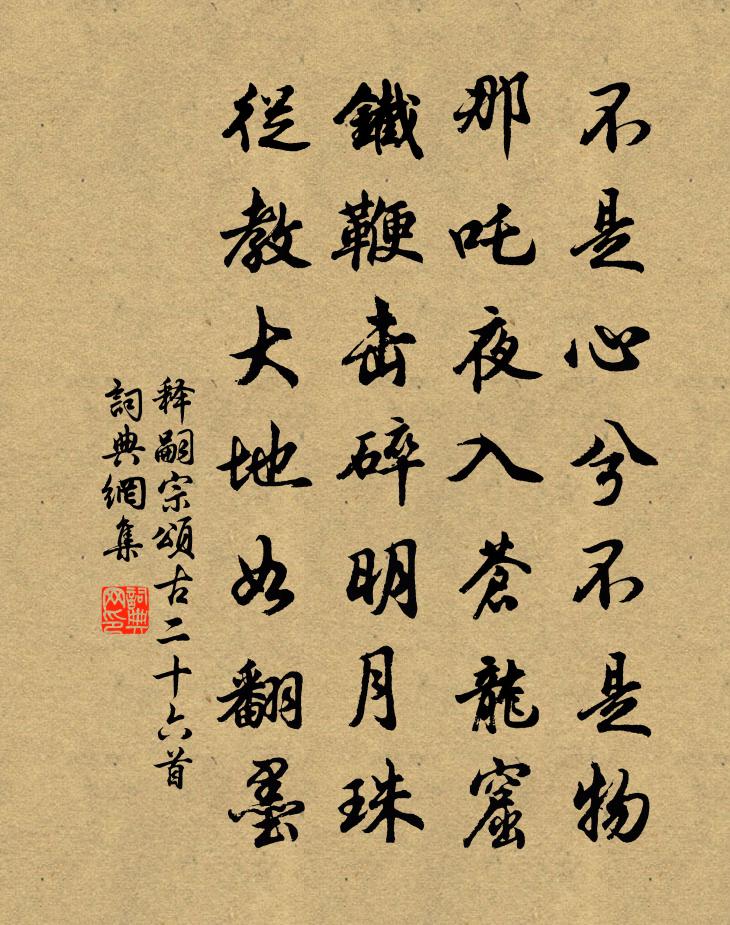 不是心兮不是物
那吒夜入蒼龍窟
鐵鞭击碎明月珠
從教大地如翻墨
释嗣宗頌古二十六首
詞典網集
詞典网印